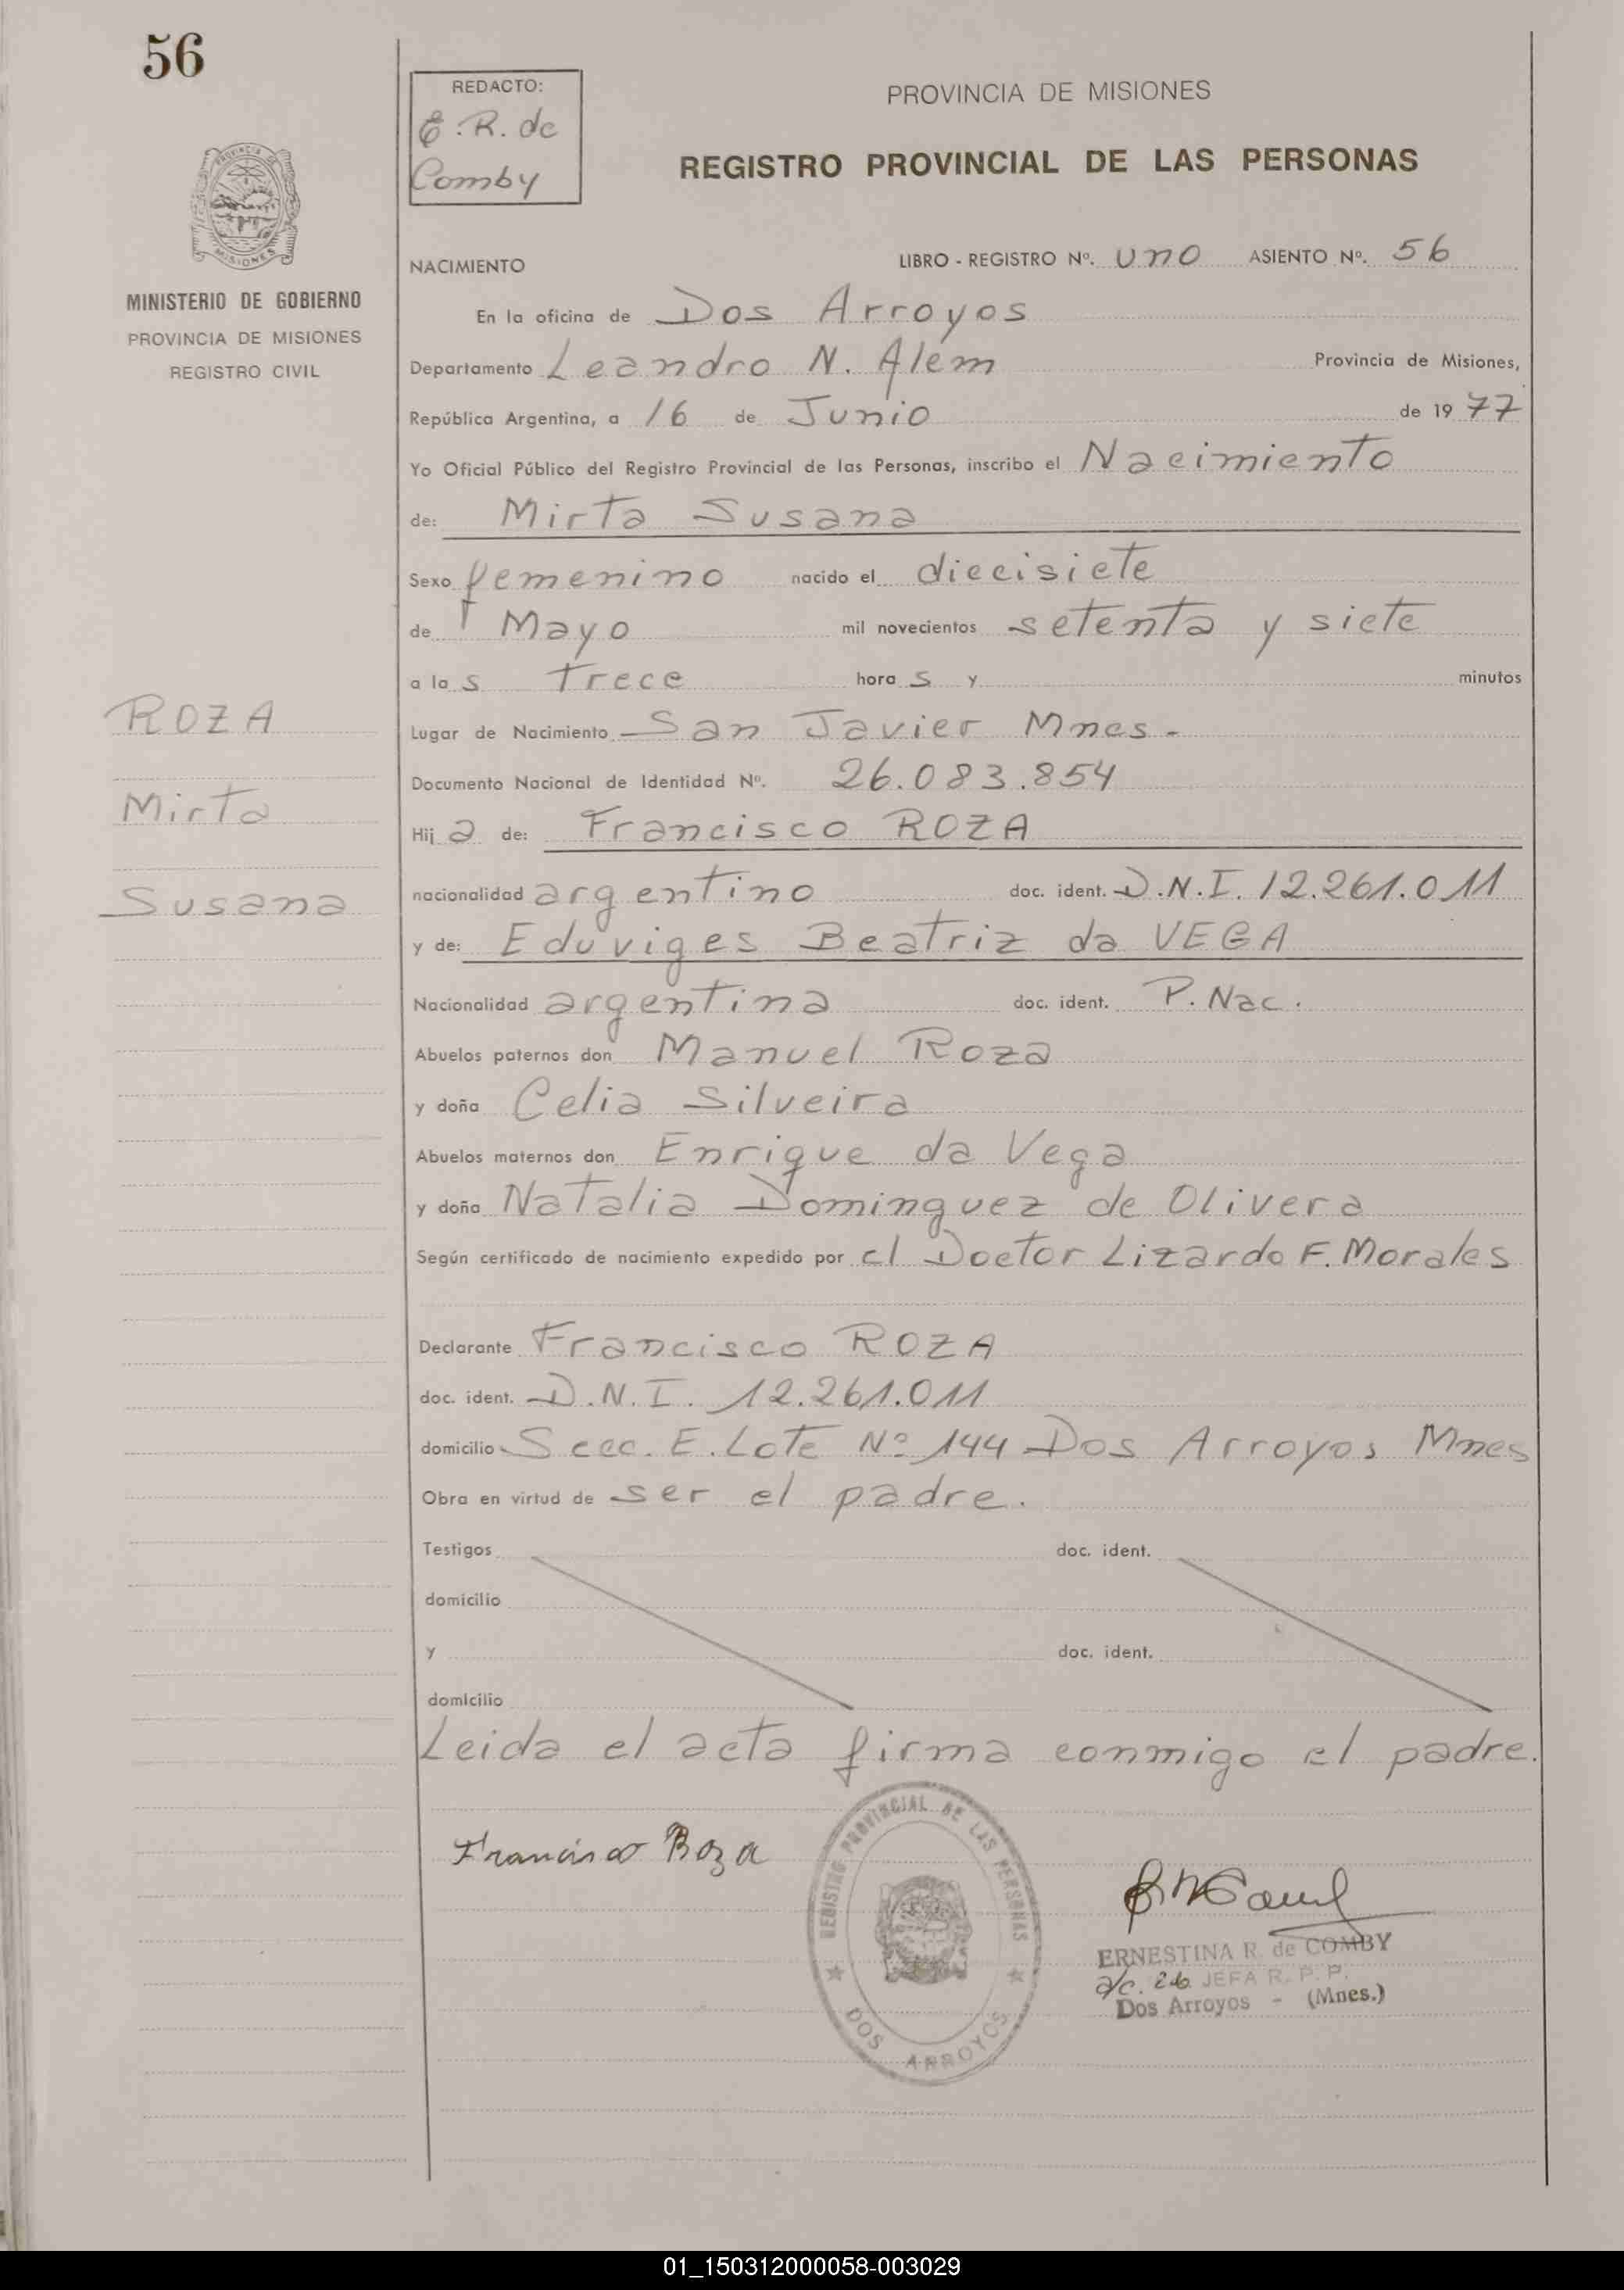 56
REDACTO:
E. R. de
Comby
PROVINCIA DE MISIONES
REGISTRO PROVINCIAL DE LAS PERSONAS
PROVINCIA DE
MISIONES
MINISTERIO DE GOBIERNO
PROVINCIA DE MISIONES
REGISTRO CIVIL
ROZA
Mirta
Susana
NACIMIENTO LIBRO - REGISTRO Nº. uno ASIENTO Nº. 56
En la oficina de Dos Arroyos
Departamento Leandro N. Alem Provincia de Misiones,
República Argentina, a 16 de Junio de 19 77
Yo Oficial Público del Registro Provincial de las Personas, inscribo el Nacimiento
de: Mirta Susana
Sexo femenino nacido el diecisiete
de Mayo mil novecientos setenta y siete
a la s trece hora s y minutos
Lugar de Nacimiento San Javier Mnes.-
Documento Nacional de Identidad Nº. 26.083.854
Hij a de: Francisco ROZA
nacionalidad argentino doc. ident. D.N.I. 12.261.011
y de: Eduviges Beatriz da VEGA
Nacionalidad argentina doc. ident. P. Nac.
Abuelos paternos don Manuel Roza
y doña Celia Silveira
Abuelos maternos don Enrique da Vega
y doña Natalia Dominguez de Olivera
Según certificado de nacimiento expedido por el Doctor Lizardo F. Morales
Declarante Francisco ROZA
doc. ident. D.N.I. 12.261.011
domicilio Secc. E. Lote Nº 144 Dos Arroyos Mnes
Obra en virtud de ser el padre.
Testigos doc. ident.
domicilio
y doc. ident.
domicilio
Leida el acta firma conmigo el padre.
Francisco Roza
REGISTRO PROVINCIAL DE LAS PERSONAS
DOS ARROYOS
ERNESTINA R. de COMBY
a/c. JEFA R. P. P.
Dos Arroyos - (Mnes.)
01_150312000058-003029